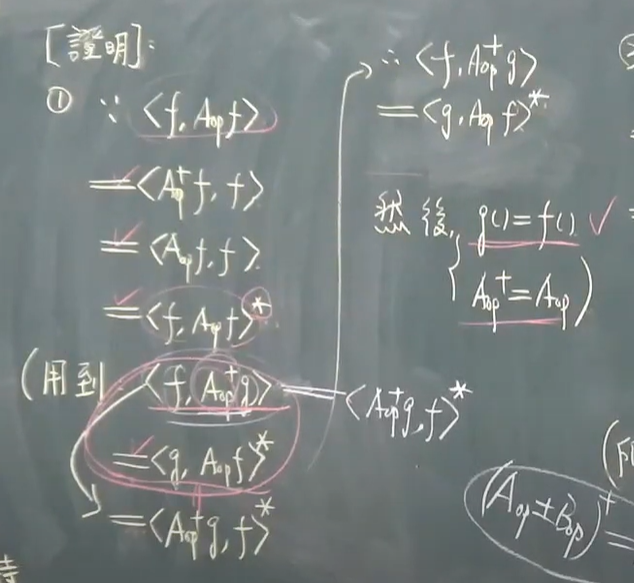 [證明]:
① ∵ <f, A_op f>
= <A_op^+ f, f>
= <A_op f, f>
= <f, A_op f>*
(用到 <f, A_op^+ g> = <A_op^+ g, f>*
= <g, A_op f>*
= <A_op^+ g, f>*
∴ <f, A_op^+ g>
= <g, A_op f>*
然後, { g() = f() ✓
A_op^+ = A_op )
(A_op ± B_op)^+ =